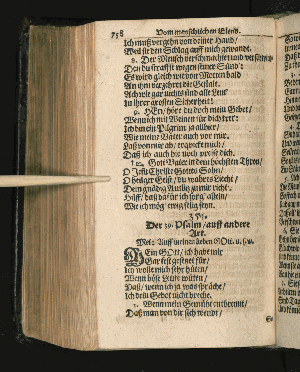 758 Vom menschlichen Elend.
Ich muß vergehn von deiner Hand/
Weil sie den Schlag auff mich gewandt.
8. Der Mensch verschmachtet und verschwindt
Den du straffst wegen seiner Sünd'
Es wird gleich wie von Motten bald
An ihm verzehret die Gestalt.
Ach wie gar nichts sind alle Leut'
In ihrer grosten Sicherheit!
9. HErr/ hör du doch mein Gebet/
Wenn mich mit Weinen für dich tret'!
Ich bin ein Pilgrim ja allhier/
Wie meine Väter auch vor mir.
Laß von mir ab/ erquick mich/
Daß ich auch die noch preise dich.
10. Gott Vater in dem höchsten Thron/
O JEsu Christe Gottes Sohn/
O heilger Geist/ du wahres Licht/
Dein gnädig Antlitz zu mir richt.
Hilff/ daß dafür ich sorg' allein/
Wie ich mög' ewig selig seyn.
Der 39. Psalm/ auff andere
Art.
Mel: Auff meinen lieben GOtt. u. s. w.
MEin GOtt/ ich habe mir
Gar fest gesetzet für/
Ich wolle mich sehr hüten/
Wenn böse Leute wüten/
Daß/ wenn ich ja was spräche/
Ich dein Gebot nicht breche.
2. Wenn mein Gemühte entbrennt/
Daß man von dir sich wendt/